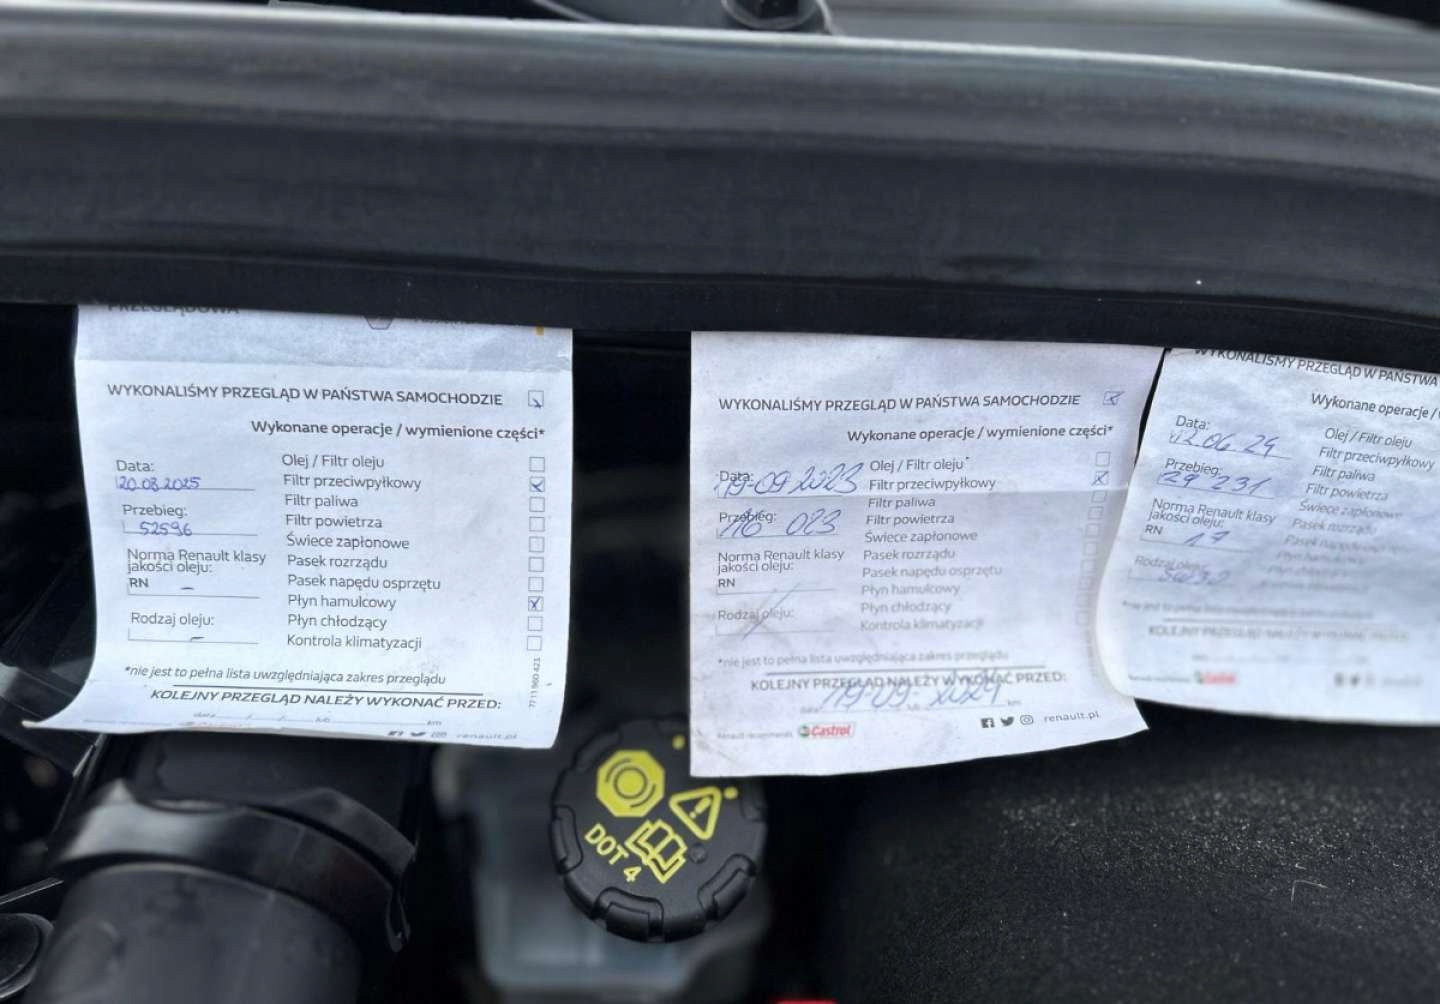 PRZEGLĄDOWA
WYKONALIŚMY PRZEGLĄD W PAŃSTWA SAMOCHODZIE
Wykonane operacje / wymienione części*
Data:
20.08.2025
Przebieg:
52596
Norma Renault klasy
jakości oleju:
RN –
Rodzaj oleju:
–
Olej / Filtr oleju
Filtr przeciwpyłkowy
Filtr paliwa
Filtr powietrza
Świece zapłonowe
Pasek rozrządu
Pasek napędu osprzętu
Płyn hamulcowy
Płyn chłodzący
Kontrola klimatyzacji
*nie jest to pełna lista uwzględniająca zakres przeglądu
KOLEJNY PRZEGLĄD NALEŻY WYKONAĆ PRZED:
data / / lub km
renault.pl
77 11 960 423
WYKONALIŚMY PRZEGLĄD W PAŃSTWA SAMOCHODZIE
Wykonane operacje / wymienione części*
Data:
19-09 2023
Przebieg:
16 023
Norma Renault klasy
jakości oleju:
RN
Rodzaj oleju:
Olej / Filtr oleju
Filtr przeciwpyłkowy
Filtr paliwa
Filtr powietrza
Świece zapłonowe
Pasek rozrządu
Pasek napędu osprzętu
Płyn hamulcowy
Płyn chłodzący
Kontrola klimatyzacji
*nie jest to pełna lista uwzględniająca zakres przeglądu
KOLEJNY PRZEGLĄD NALEŻY WYKONAĆ PRZED:
19-09- 2024
data lub km
Renault recommends Castrol
renault.pl
WYKONALIŚMY PRZEGLĄD W PAŃSTWA
Wykonane operacje /
Data:
12.06.24
Przebieg:
29 231
Norma Renault klasy
jakości oleju:
RN 17
Rodzaj oleju:
5W30
Olej / Filtr oleju
Filtr przeciwpyłkowy
Filtr paliwa
Filtr powietrza
Świece zapłonowe
Pasek rozrządu
Pasek napędu
Płyn hamulcowy
Płyn chłodzący
Kontrola klimatyzacji
*nie jest to pełna lista uwzględniająca zakres
KOLEJNY PRZEGLĄD NALEŻY WYKONAĆ
Castrol
DOT 4